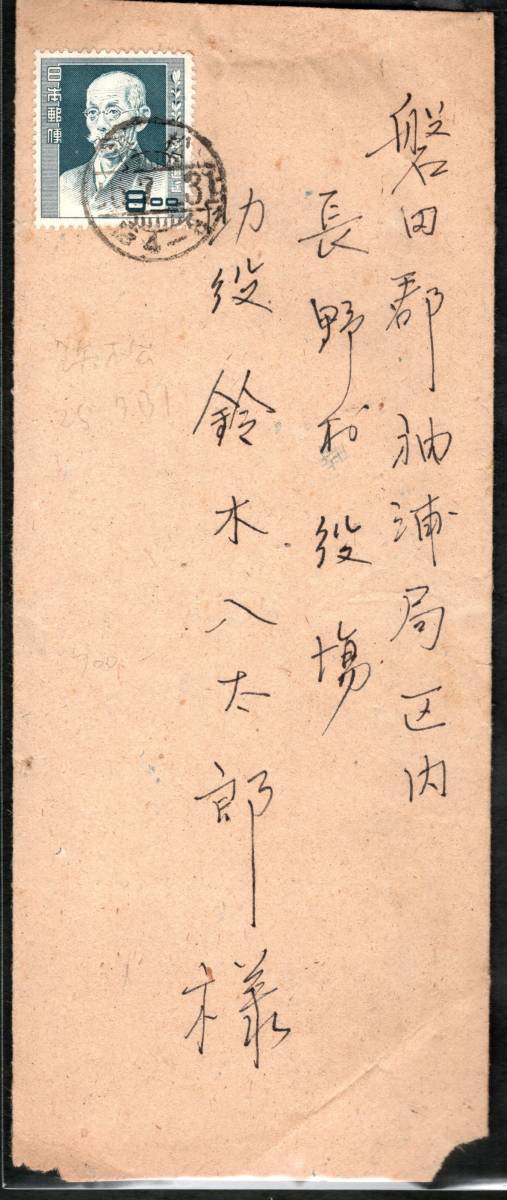 磐田郡袖浦局区内
長野村役場
助役 鈴木八太郎
様
日本郵便
8.00
25 7.31